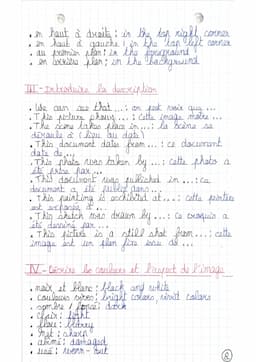 . en haut à droite : in the top right corner
. en haut à gauche : in the top left corner
. au premier plan : in the foreground
. en arrière plan : in the background
III - Introduire la description
. We can see that ... : on peut voir que ...
. This picture shows ... : cette image montre ...
. The scene takes place in ... : la scène se
déroule à (lieu ou date)
. This document dates from ... : ce document
date de ...
. This photo was taken by ... : cette photo a
été prise par ...
. This document was published in ... : ce
document a été publié dans ...
. This painting is exhibited at ... : cette peinture
est exposée à ...
. This sketch was drawn by ... : ce croquis a
été dessiné par ...
. This picture is a still shot from ... : cette
image est un plan fixe issu de ...
IV - Décrire les couleurs et l'aspect de l'image
. noir et blanc : black and white
. couleurs vives : bright colors, vivid colors
. sombre / foncé : dark
. clair : light
. flou : blurry
. net : sharp
. abîmé : damaged
. usé : worn-out